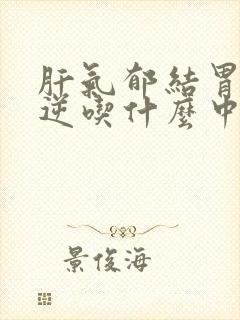 肝氣郁結胃
逆喫什麼中
景俊海